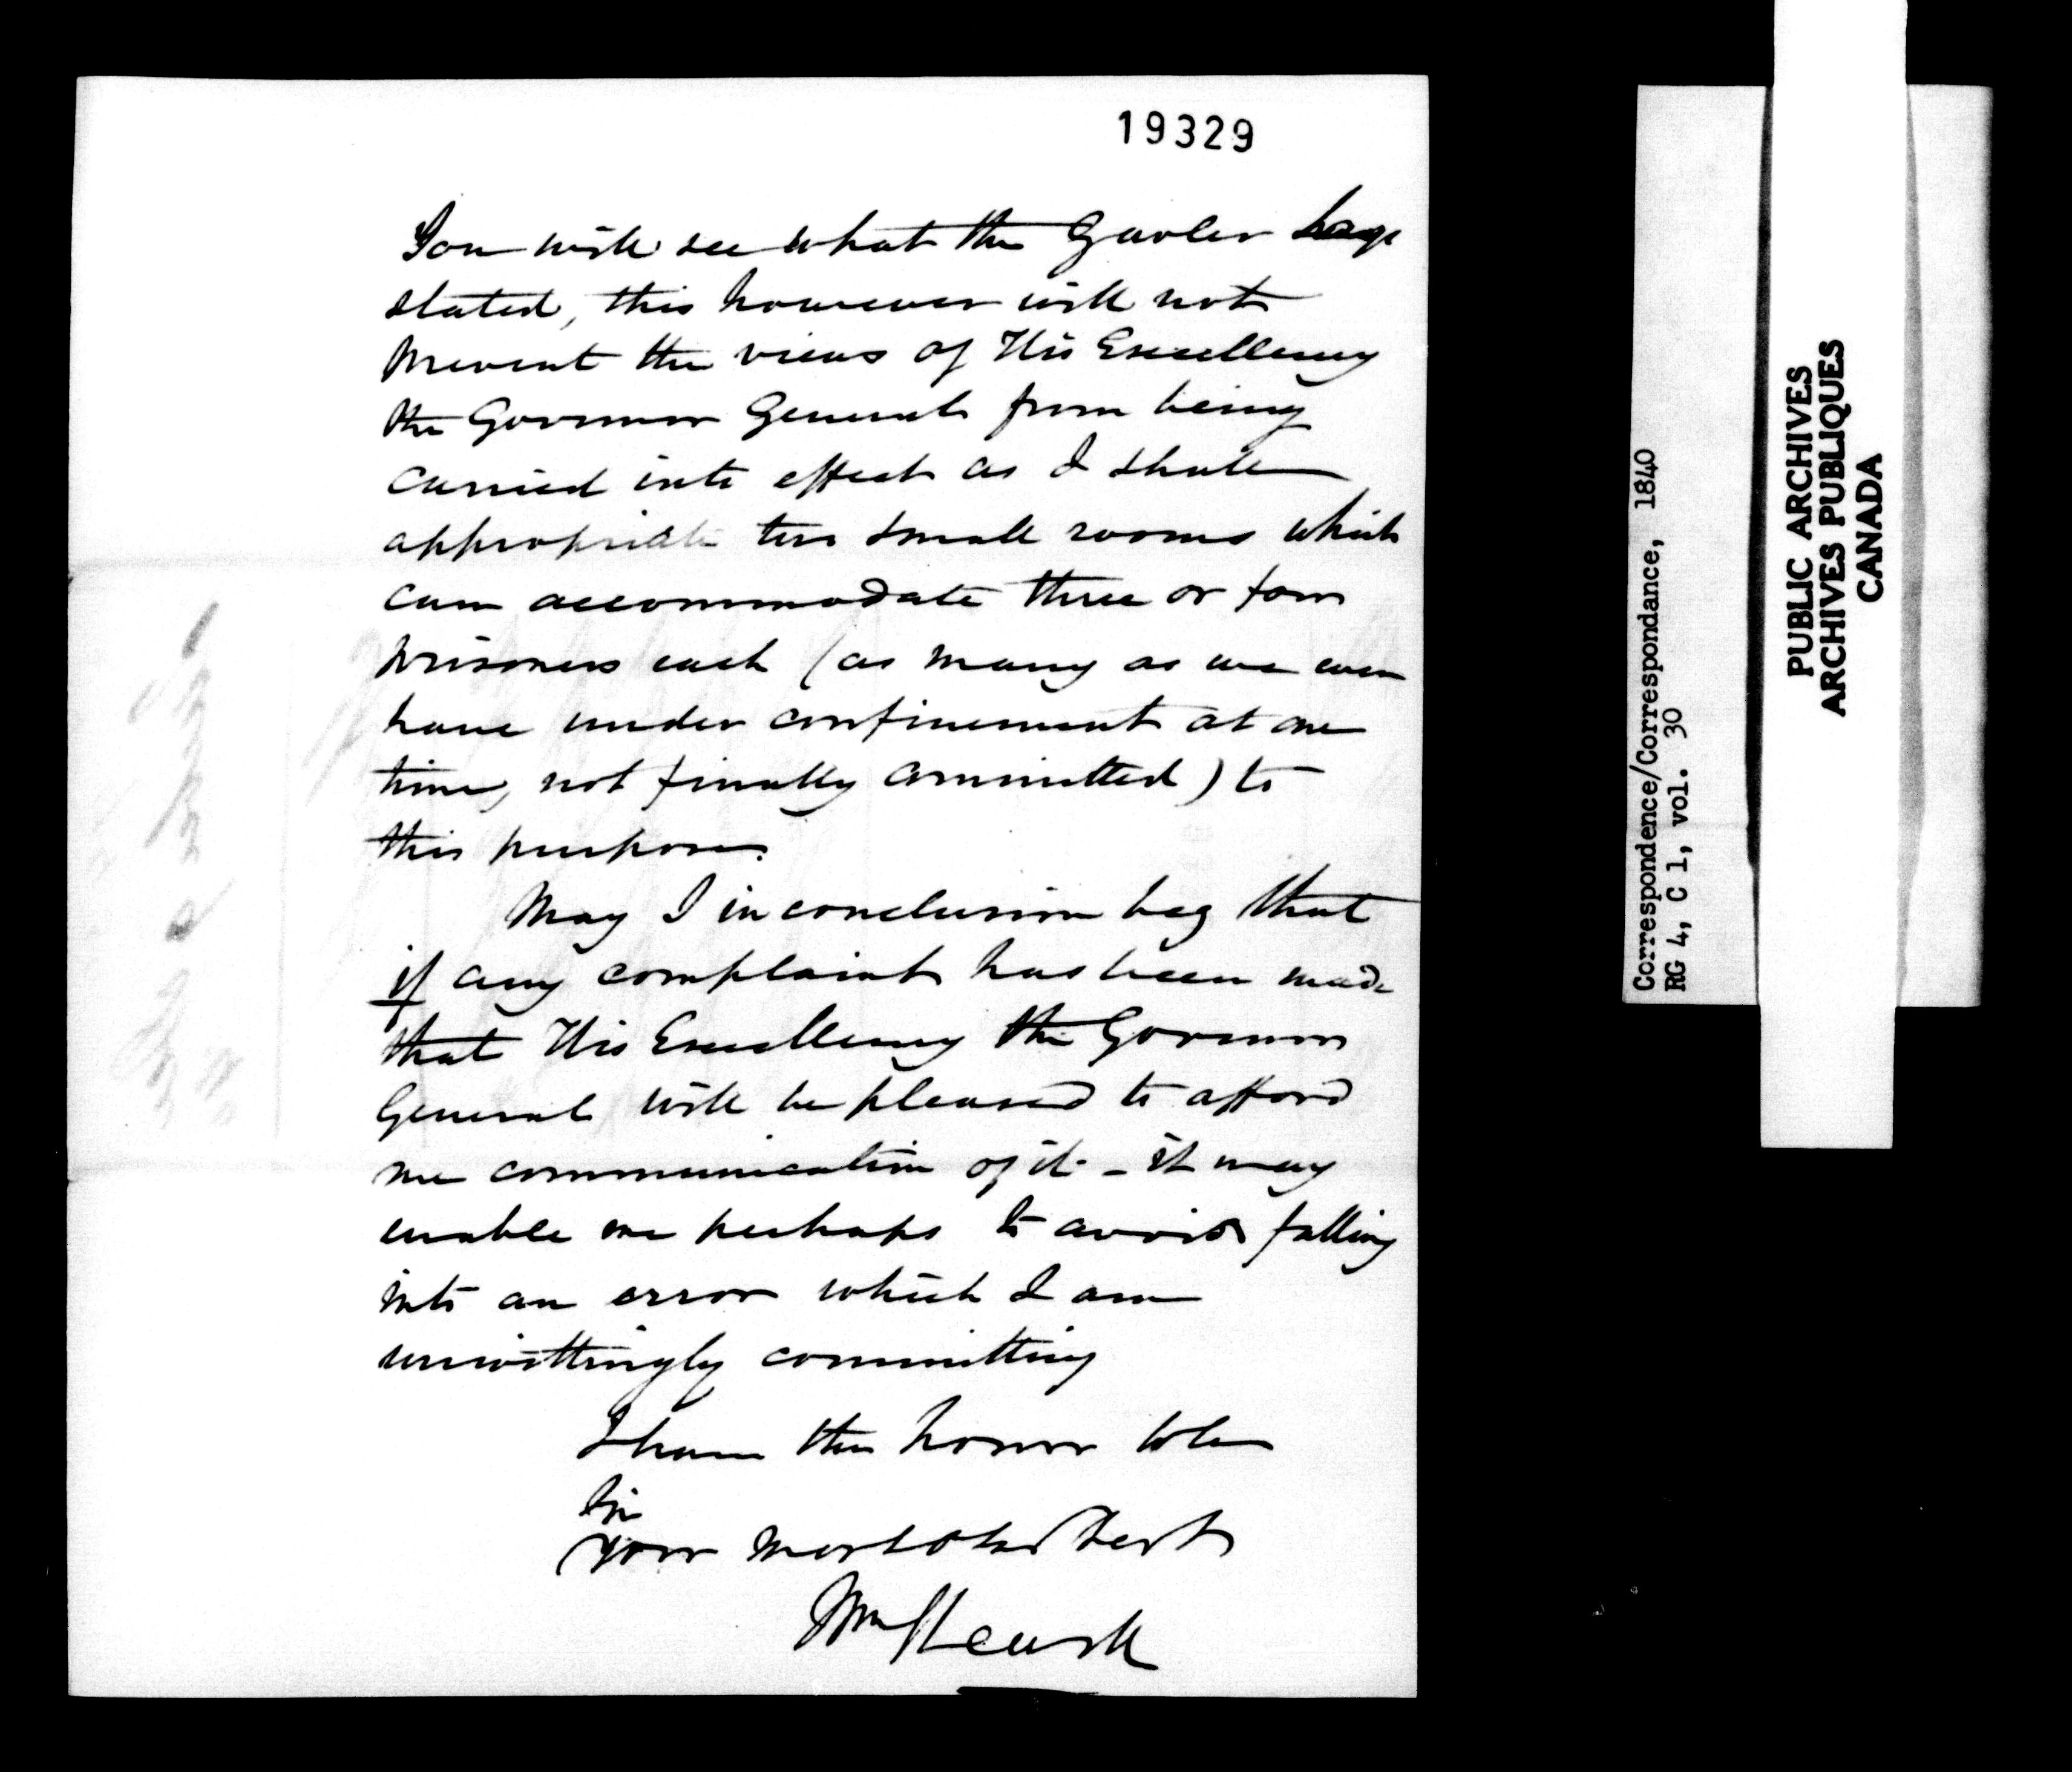 19329
You will see what the Gaoler has
stated, this however will not
prevent the views of His Excellency
the Governor General from being
carried into effect as I shall
appropriate two small rooms which
can accommodate three or four
prisoners each (as many as we ever
have under confinement at one
time, not finally committed) to
this purpose.
May I in conclusion beg that
if any complaint has been made
that His Excellency the Governor
General will be pleased to afford
me communication of it - it may
enable me perhaps to avoid falling
into an error which I am
unwittingly committing
I have the honor to be
Sir
Your most obed Servt
Correspondence/Correspondance, 1840
RG 4, C 1, vol. 30
PUBLIC ARCHIVES
ARCHIVES PUBLIQUES
CANADA